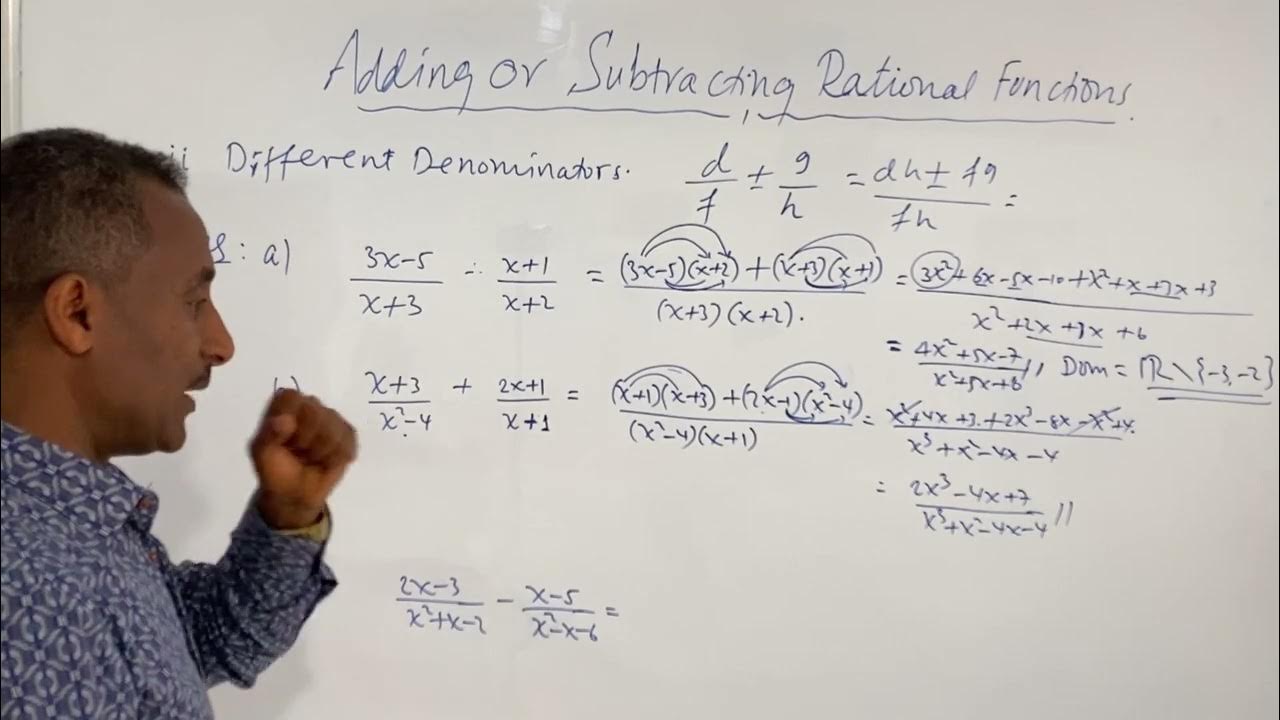 Adding or Subtracting Rational Functions.
ii Different Denominators. d/f ± g/h = dh ± fg/fh =
: a) 3x-5/x+3 ÷ x+1/x+2 = (3x-5)(x+2)+(x+3)(x+1)/(x+3)(x+2). = 3x²+6x-5x-10+x²+x+3x+3/x²+2x+3x+6
= 4x²+5x-7/x²+5x+6 // Dom = ℝ\{-3,-2}
x+3/x²-4 + 2x+1/x+1 = (x+1)(x+3)+(2x-1)(x²-4)/(x²-4)(x+1) = x²+4x+3+2x³-8x-x²+4./x³+x²-4x-4
= 2x³-4x+7/x³+x²-4x-4 //
2x-3/x²+x-2 - x-5/x²-x-6 =